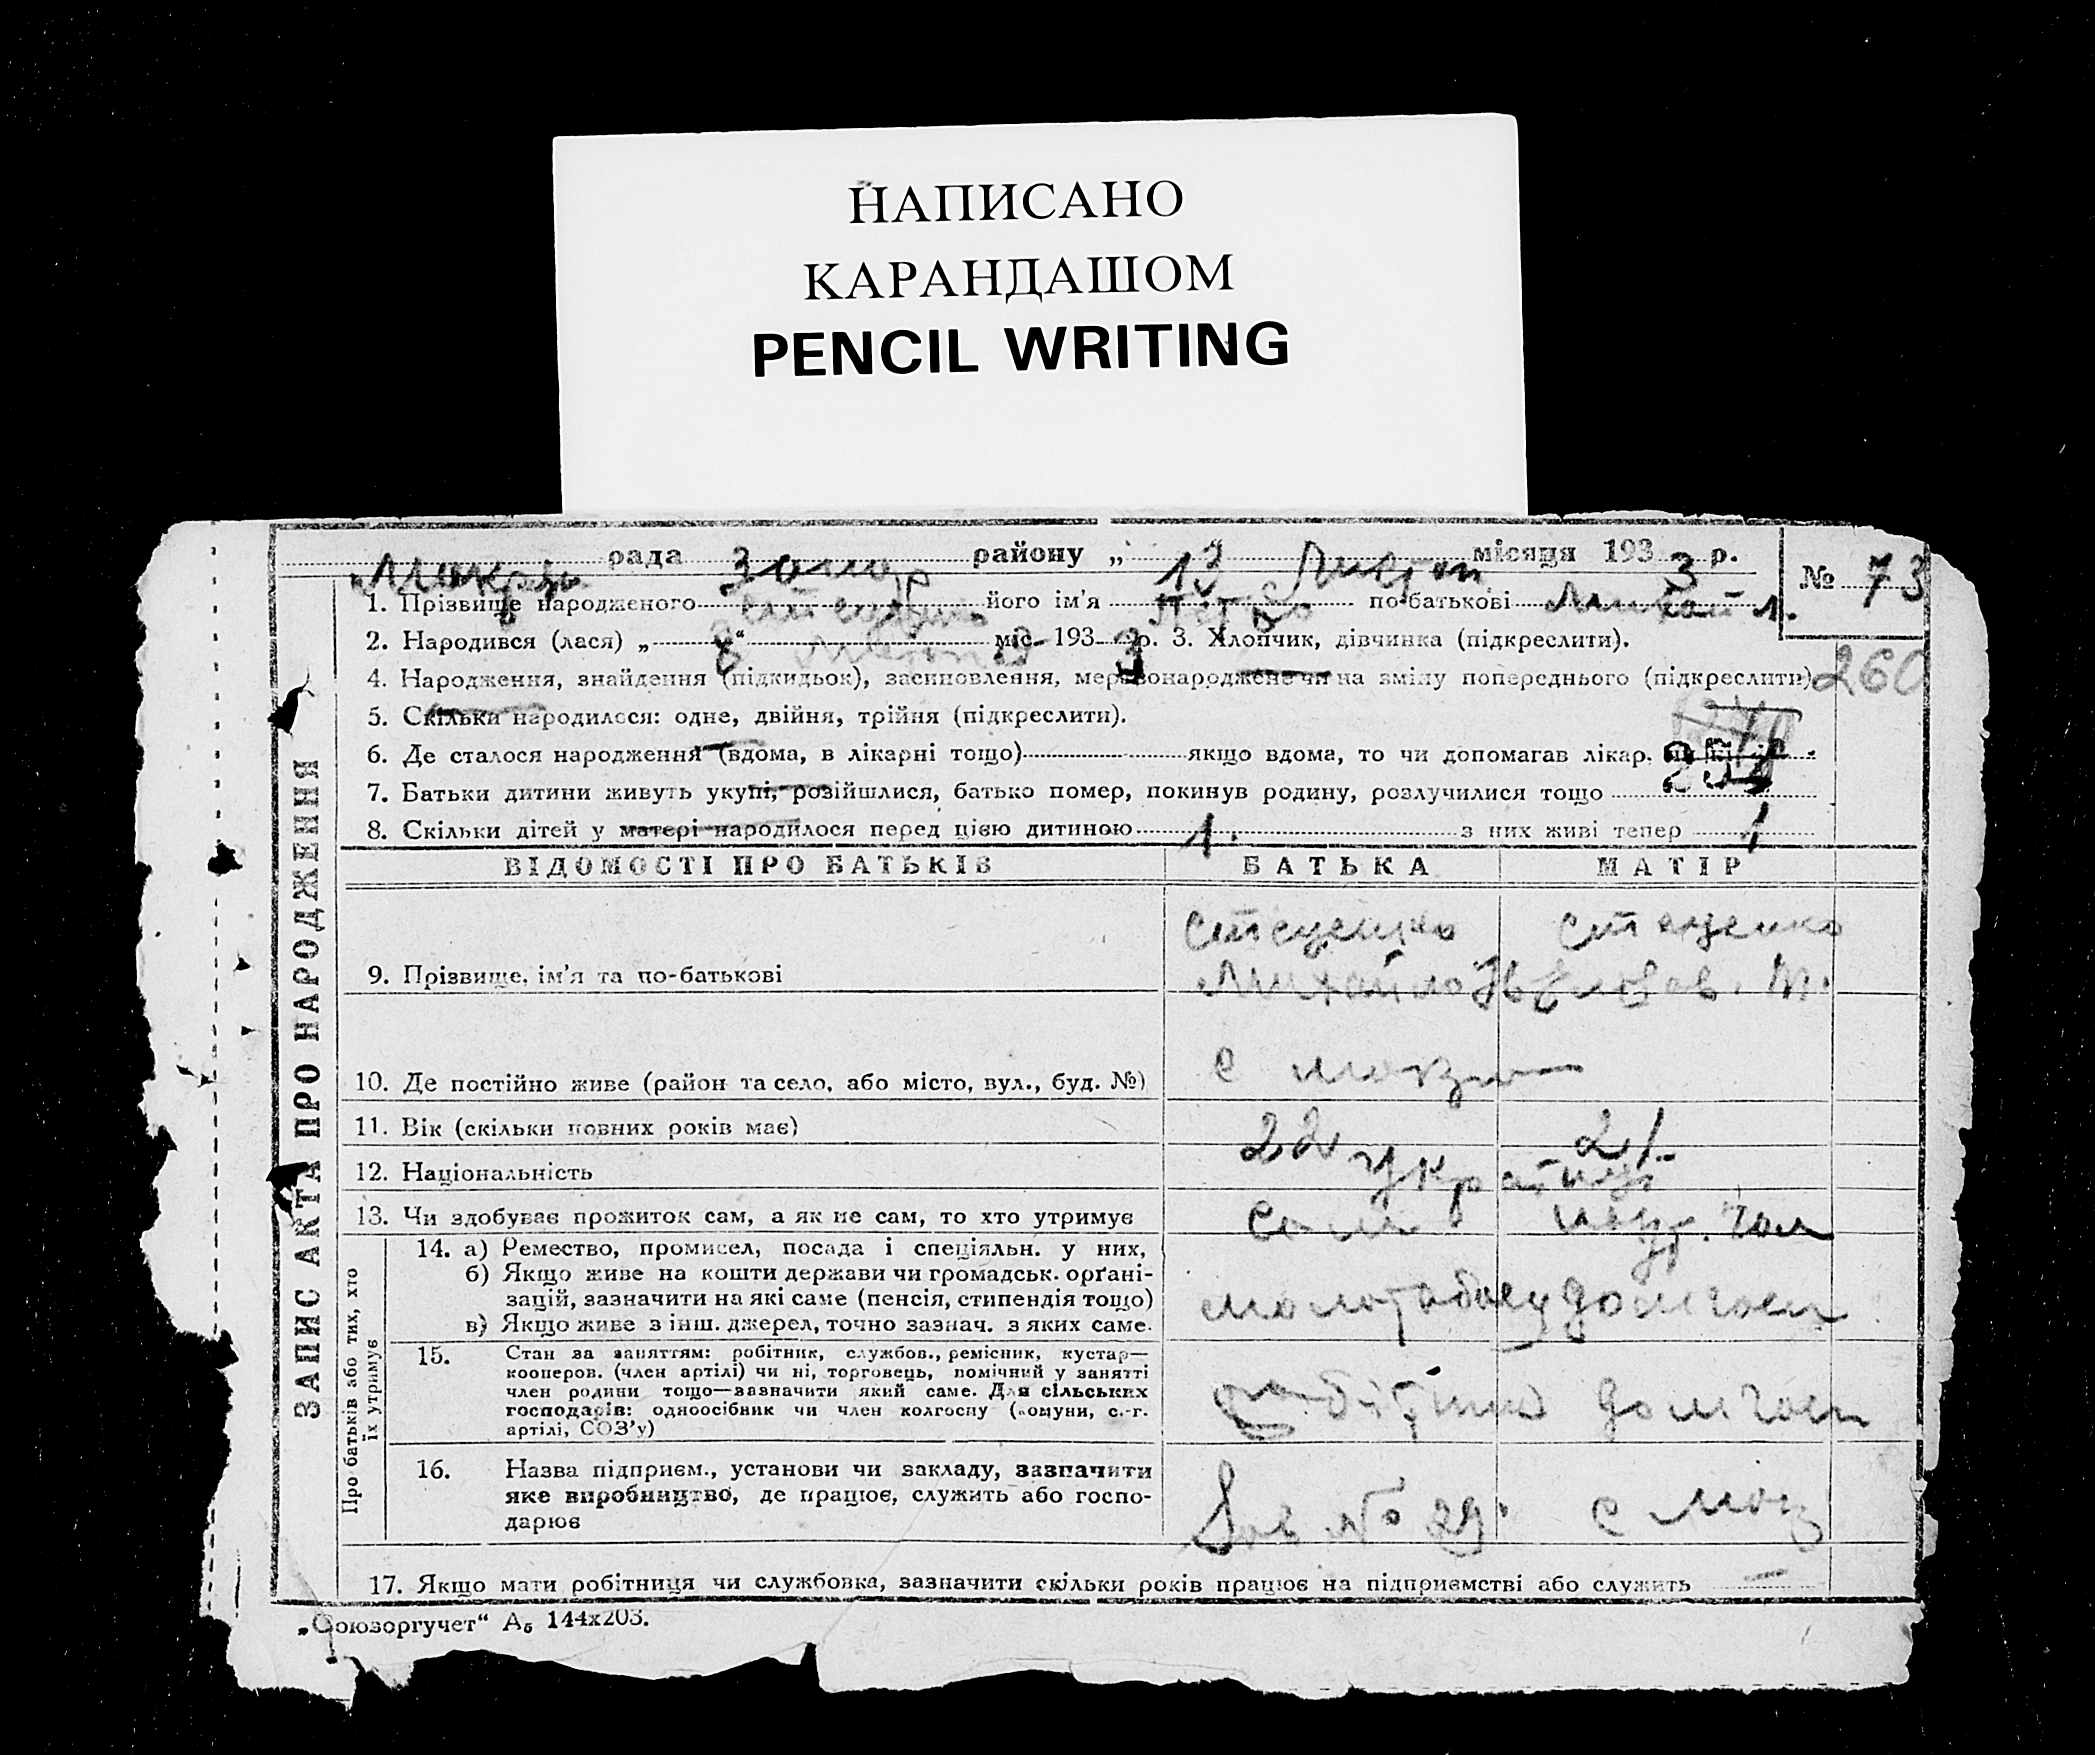 НАПИСАНО
КАРАНДАШОМ
PENCIL WRITING
рада Запор району „ 13 “ місяця 193 3 р.
№ 73
1. Прізвище народженого його ім'я Петро по-батькові Михайл.
2. Народився (лася) „ 8 “ міс. 193 3 р. 3. Хлопчик, дівчинка (підкреслити).
4. Народження, знайдення (підкидьок), засиновлення, мертвонароджене чи на зміну попереднього (підкреслити)
260
5. Скільки народилося: одне, двійня, трійня (підкреслити).
6. Де сталося народження (вдома, в лікарні тощо) якщо вдома, то чи допомагав лікар.
7. Батьки дитини живуть укупі, розійшлися, батько помер, покинув родину, розлучилися тощо
8. Скільки дітей у матері народилося перед цією дитиною 1. з них живі тепер 1
ВІДОМОСТІ ПРО БАТЬКІВ БАТЬКА МАТІР
Стеценко Стеценко
9. Прізвище, ім'я та по-батькові Михайло
10. Де постійно живе (район та село, або місто, вул., буд. №) с
11. Вік (скільки повних років має) 22 21.
12. Національність україн
13. Чи здобуває прожиток сам, а як не сам, то хто утримує сам чол
14. а) Ремество, промисел, посада і спеціяльн. у них,
б) Якщо живе на кошти держави чи громадськ. орґані-
зацій, зазначити на які саме (пенсія, стипендія тощо)
в) Якщо живе з інш. джерел, точно зазнач. з яких саме.
молотобоец домгосп
15. Стан за заняттям: робітник, службов., ремісник, кустар—
кооперов. (член артілі) чи ні, торговець, помічний у занятті
член родини тощо—зазначити який саме. Для сільських
господарів: одноосібник чи член колгоспу (комуни, с.-г.
артілі, СОЗ'у)
робітник домгосп
16. Назва підприєм., установи чи закладу, зазначити
яке виробництво, де працює, служить або госпо-
дарює
Зав № 29 с
17. Якщо мати робітниця чи службовка, зазначити скільки років працює на підприємстві або служить —
„Союзоргучет“ А₅ 144х203.
ЗАПИС АКТА ПРО НАРОДЖЕННЯ
Про батьків або тих, хто
їх утримує